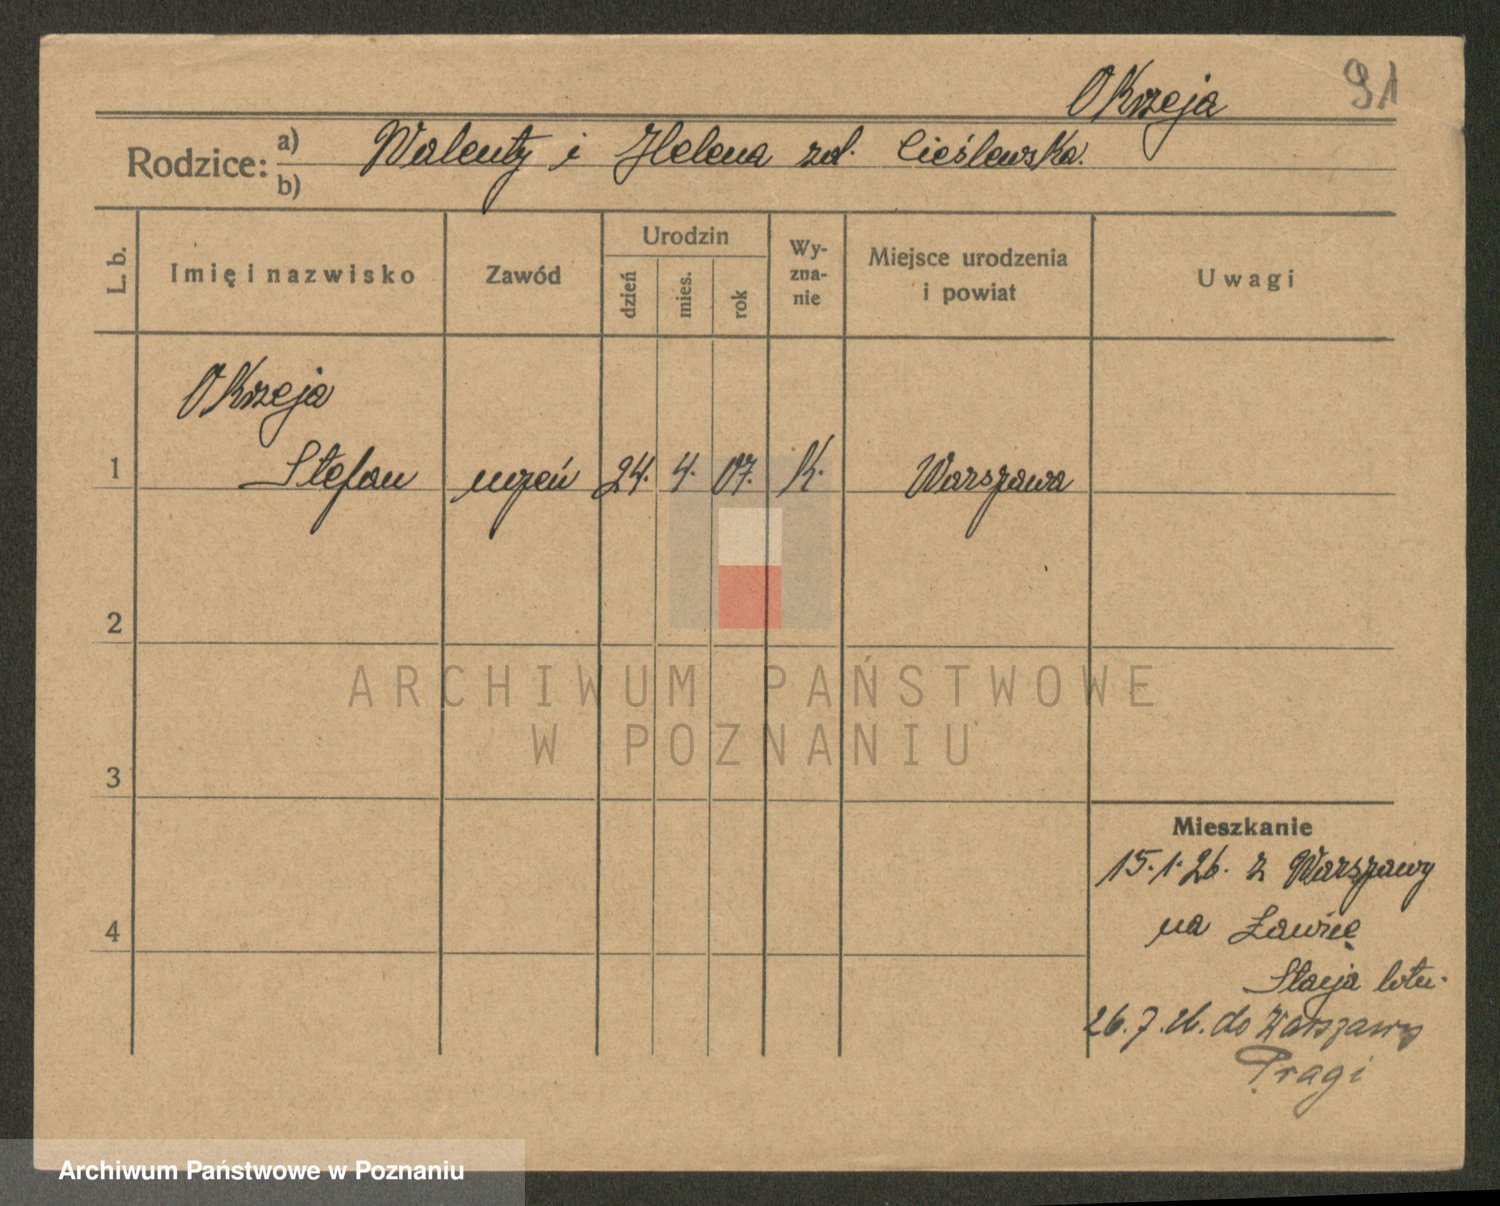 Okrzeja 91
Rodzice: a) Walenty i Helena zd. Cieślewska.
b)
L. b. Imię i nazwisko Zawód Urodzin dzień mies. rok Wy-zna-nie Miejsce urodzenia i powiat Uwagi
Okrzeja
1 Stefan uczeń 24. 4. 07. K. Warszawa
2
3
4
Mieszkanie
15.1.26. z Warszawy
na Ławicę
Stacja lotn.
26.7.26. do Warszawy
Pragi
ARCHIWUM PAŃSTWOWE
W POZNANIU
Archiwum Państwowe w Poznaniu